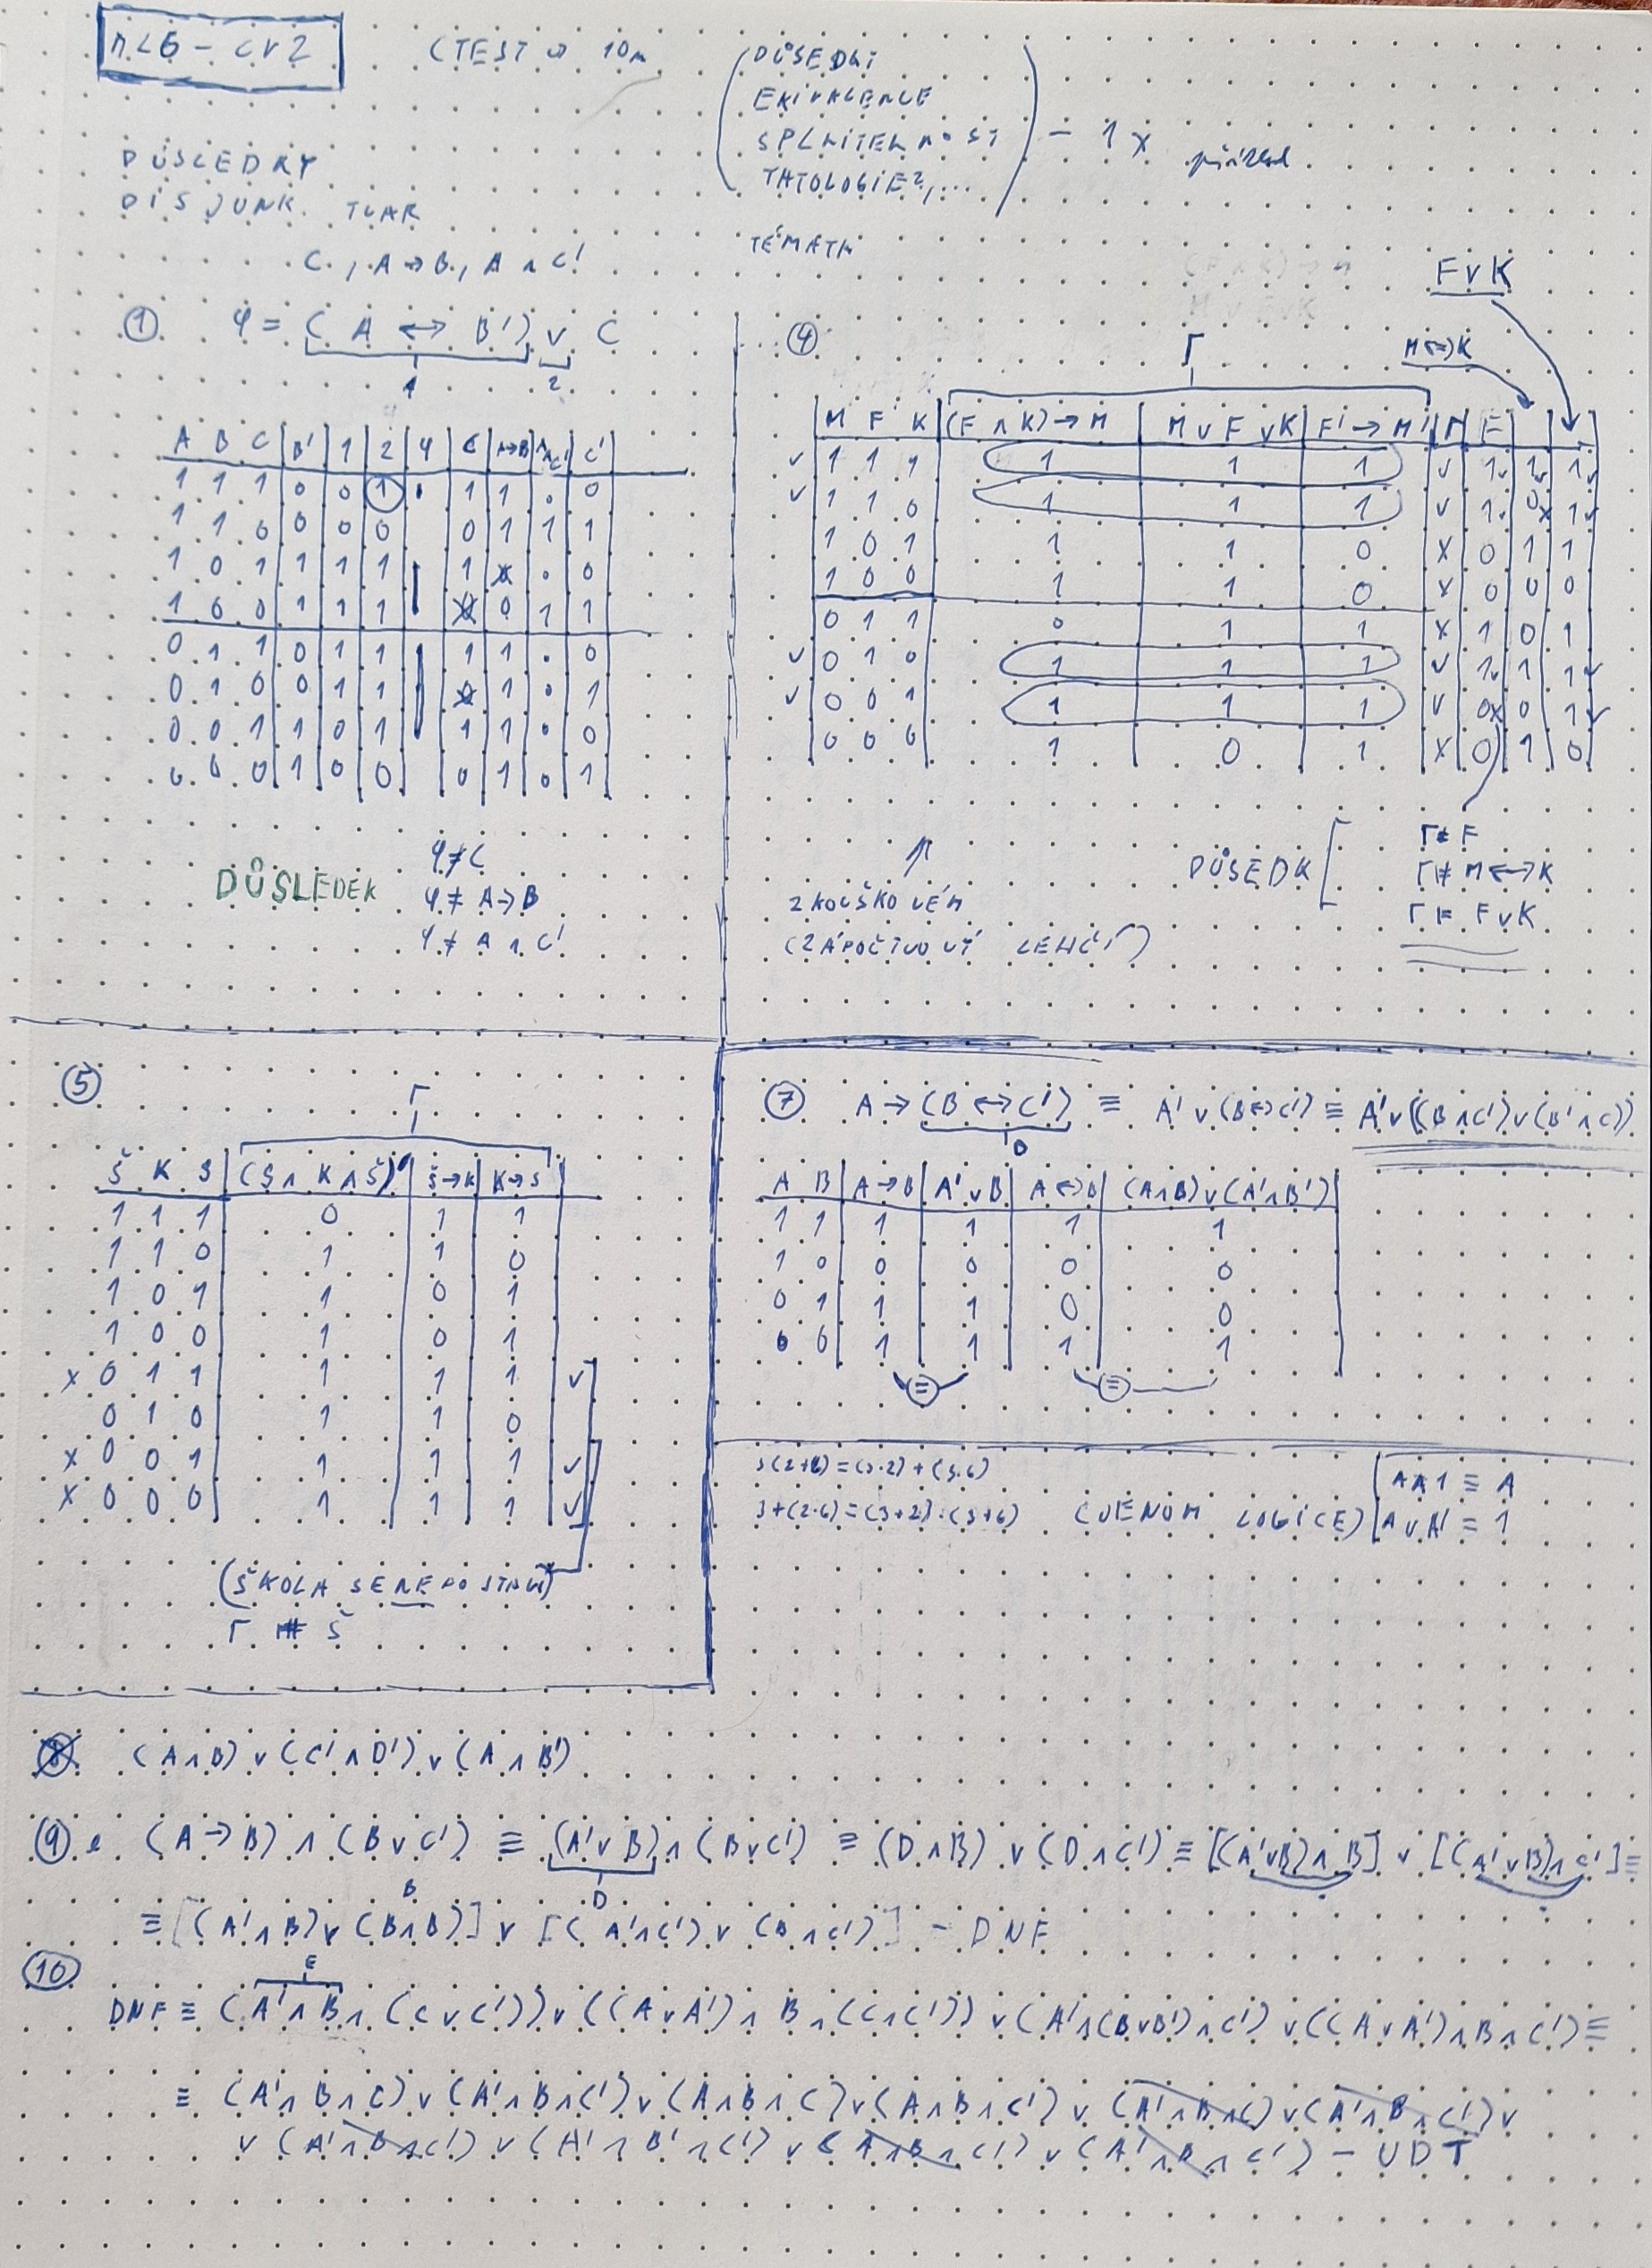 MLG - CV2
(TEST → 10m
(DŮSEDKY
EKIVALENCE
SPLNITELNOST
TATOLOGIE?,...) - 1x příklad
TÉMATA
DŮSLEDKY
DISJUNK. TVAR
C, A → B, A ∧ C'
① φ = (A ↔ B') ∨ C
1 2
A B C | B' | 1 | 2 | φ | C | A→B | A∧C' | C'
1 1 1 | 0 | 0 | 1 | • | 1 | 1 | 0 | 0
1 1 0 | 0 | 0 | 0 | | 0 | 1 | 1 | 1
1 0 1 | 1 | 1 | 1 | | 1 | 0 | 0
1 0 0 | 1 | 1 | 1 | | 0 | 0 | 1 | 1
0 1 1 | 0 | 1 | 1 | | 1 | 1 | 0 | 0
0 1 0 | 0 | 1 | 1 | | 0 | 1 | 0 | 1
0 0 1 | 1 | 0 | 1 | | 1 | 1 | 0 | 0
0 0 0 | 1 | 0 | 0 | | 0 | 1 | 0 | 1
DŮSLEDEK
φ ⊭ C
φ ⊭ A → B
φ ⊭ A ∧ C'
④ Γ
M ↔ K
F ∨ K
M F K | (F ∧ K) → M | M ∨ F ∨ K | F' → M' | Γ | F
✓ 1 1 1 | 1 | 1 | 1 | ✓ | 1✓ | 1✓ | 1✓
✓ 1 1 0 | 1 | 1 | 1 | ✓ | 1✓ | 0x | 1✓
1 0 1 | 1 | 1 | 0 | x | 0 | 1 | 1
1 0 0 | 1 | 1 | 0 | x | 0 | 0 | 0
0 1 1 | 0 | 1 | 1 | x | 1 | 0 | 1
✓ 0 1 0 | 1 | 1 | 1 | ✓ | 1✓ | 1 | 1✓
✓ 0 0 1 | 1 | 1 | 1 | ✓ | 0x | 0 | 1✓
0 0 0 | 1 | 0 | 1 | x | 0 | 1 | 0
↑
ZKOUŠKOVÉM
(ZÁPOČTVOVÝ LEHČÍ)
DŮSEDK
Γ ⊭ F
Γ ⊭ M ↔ K
Γ ⊨ F ∨ K
⑤ Γ
Š K S | (S ∧ K ∧ Š)' | Š → K | K → S
1 1 1 | 0 | 1 | 1
1 1 0 | 1 | 1 | 0
1 0 1 | 1 | 0 | 1
1 0 0 | 1 | 0 | 1
x 0 1 1 | 1 | 1 | 1 | ✓
0 1 0 | 1 | 1 | 0
x 0 0 1 | 1 | 1 | 1 | ✓
x 0 0 0 | 1 | 1 | 1 | ✓
(ŠKOLA SE NEPOSTAVÍ)
Γ ⊭ Š
⑦ A → (B ↔ C') ≡ A' ∨ (B ↔ C') ≡ A' ∨ ((B ∧ C') ∨ (B' ∧ C))
D
A B | A → B | A' ∨ B | A ↔ B | (A ∧ B) ∨ (A' ∧ B')
1 1 | 1 | 1 | 1 | 1
1 0 | 0 | 0 | 0 | 0
0 1 | 1 | 1 | 0 | 0
0 0 | 1 | 1 | 1 | 1
≡ ≡
3(2+6) = (3·2) + (3·6)
3+(2·6) = (3+2)·(3+6) (JENOM LOGICE)
A ∧ 1 ≡ A
A ∨ A' = 1
⑧ (A ∧ B) ∨ (C' ∧ D') ∨ (A ∧ B')
⑨ (A → B) ∧ (B ∨ C') ≡ (A' ∨ B) ∧ (B ∨ C') ≡ (D ∧ B) ∨ (D ∧ C') ≡ [(A' ∨ B) ∧ B] ∨ [(A' ∨ B) ∧ C'] ≡
B D
≡ [(A' ∧ B) ∨ (B ∧ B)] ∨ [(A' ∧ C') ∨ (B ∧ C')] - DNF
⑩ E
DNF ≡ (A' ∧ B ∧ (C ∨ C')) ∨ ((A ∨ A') ∧ B ∧ (C ∧ C')) ∨ (A' ∧ (B ∨ B') ∧ C') ∨ ((A ∨ A') ∧ B ∧ C') ≡
≡ (A' ∧ B ∧ C) ∨ (A' ∧ B ∧ C') ∨ (A ∧ B ∧ C) ∨ (A ∧ B ∧ C') ∨ (A' ∧ B ∧ C) ∨ (A' ∧ B ∧ C') ∨
∨ (A' ∧ B ∧ C') ∨ (A' ∧ B' ∧ C') ∨ (A ∧ B ∧ C') ∨ (A' ∧ B ∧ C') - UDT